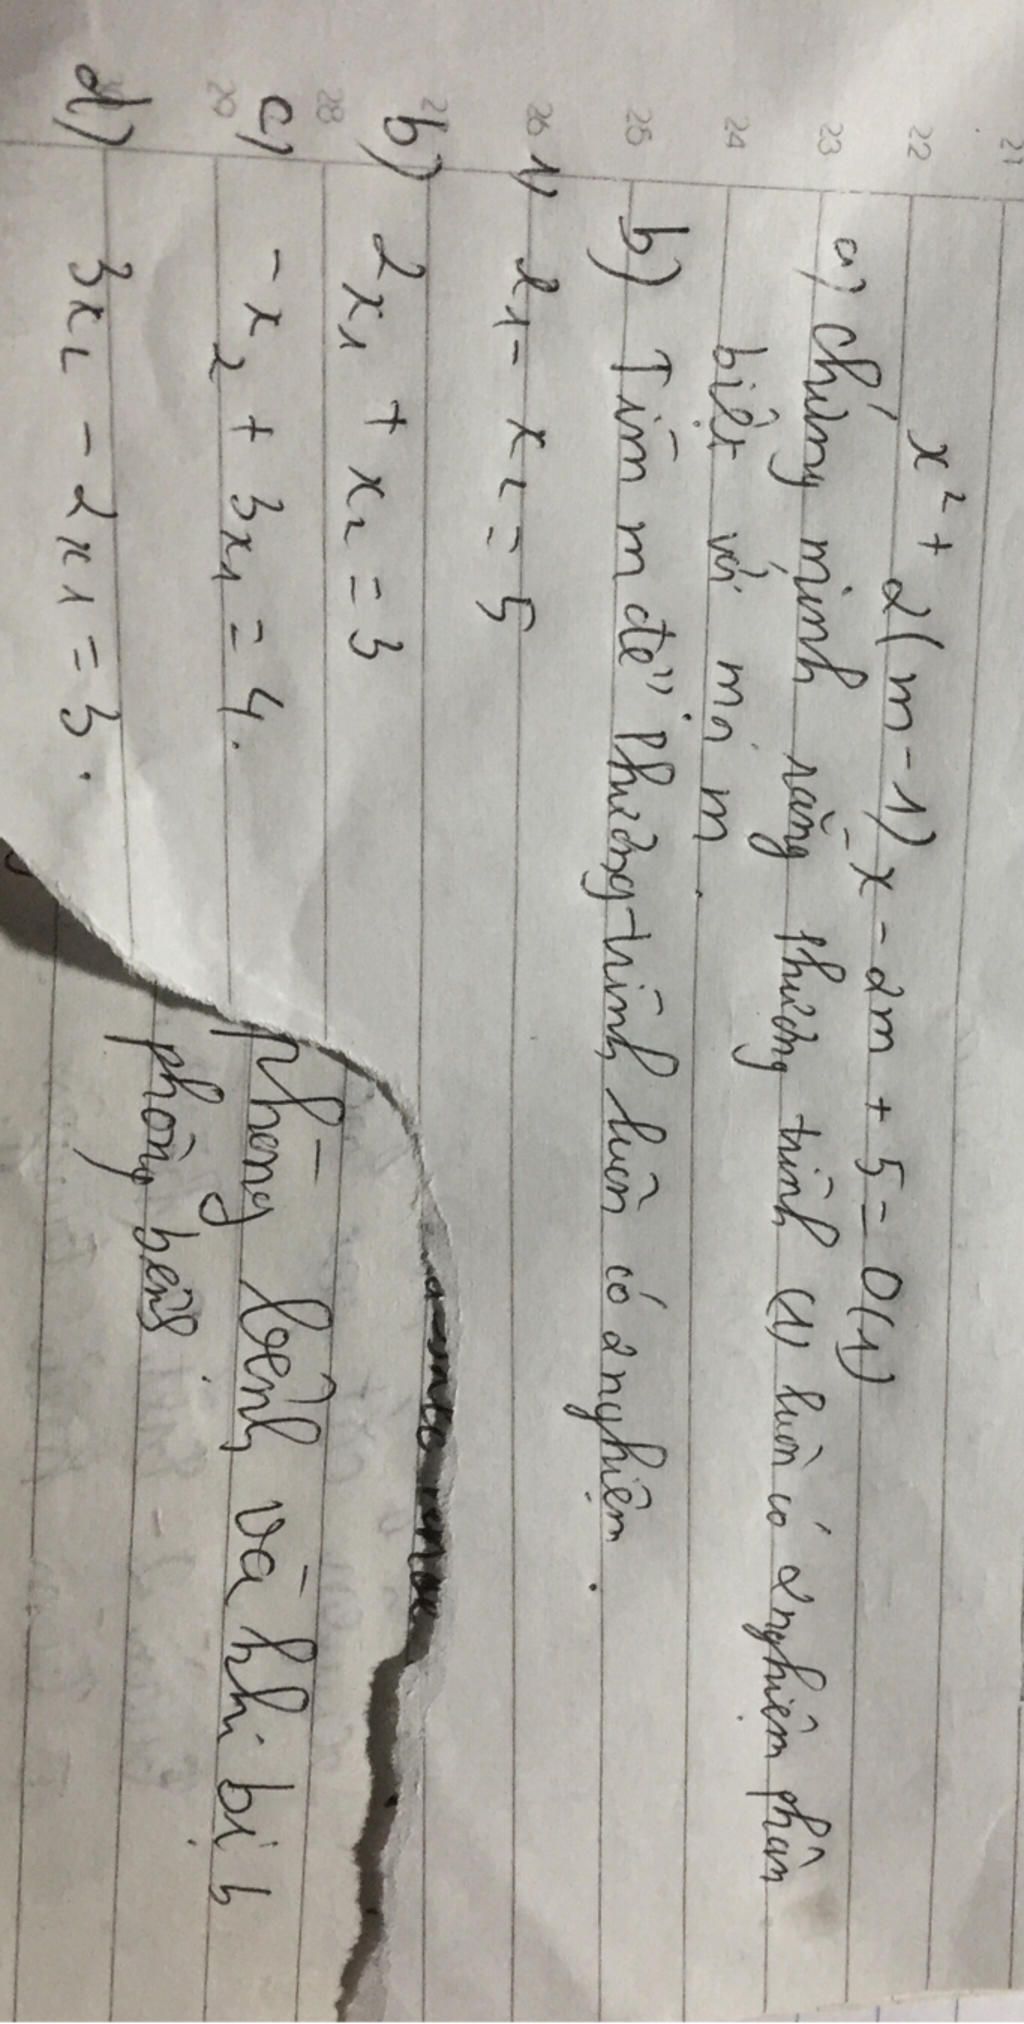 x² + 2(m-1)x - 2m + 5 = 0 (1)
a) chứng minh rằng phương trình (1) luôn có 2 nghiệm phân
biệt với mọi m.
b) Tìm m để phương trình luôn có 2 nghiệm.
1) x₁ - x₂ = 5
b) 2x₁ + x₂ = 3
c) -x₂ + 3x₁ = 4.
d) 3x₂ - 2x₁ = 3.
phòng bệnh và khi bị b
phòng bệnh
21
22
23
24
25
26
27
28
29